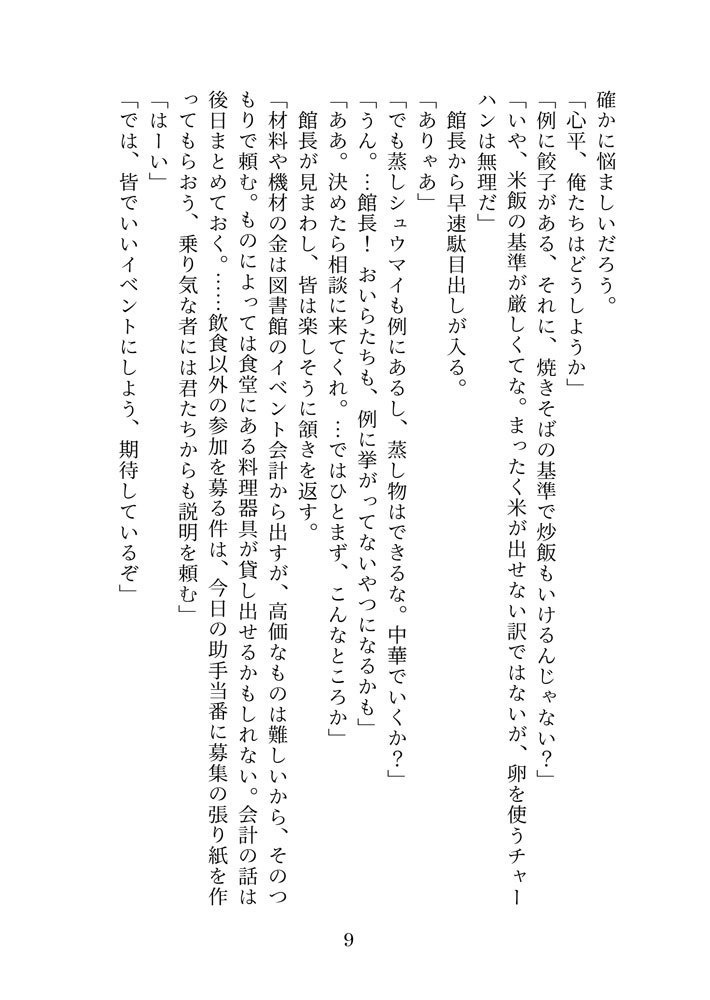 確かに悩ましいだろう。
「心平、俺たちはどうしようか」
「例に餃子がある、それに、焼きそばの基準で炒飯もいけるんじゃない？」
「いや、米飯の基準が厳しくてな。まったく米が出せない訳ではないが、卵を使うチャー
ハンは無理だ」
　館長から早速駄目出しが入る。
「ありゃあ」
「でも蒸しシュウマイも例にあるし、蒸し物はできるな。中華でいくか？」
「うん。…館長！　おいらたちも、例に挙がってないやつになるかも」
「ああ。決めたら相談に来てくれ。…ではひとまず、こんなところか」
　館長が見まわし、皆は楽しそうに頷きを返す。
「材料や機材の金は図書館のイベント会計から出すが、高価なものは難しいから、そのつ
もりで頼む。ものによっては食堂にある料理器具が貸し出せるかもしれない。会計の話は
後日まとめておく。……飲食以外の参加を募る件は、今日の助手当番に募集の張り紙を作
ってもらおう、乗り気な者には君たちからも説明を頼む」
「はーい」
「では、皆でいいイベントにしよう、期待しているぞ」
9